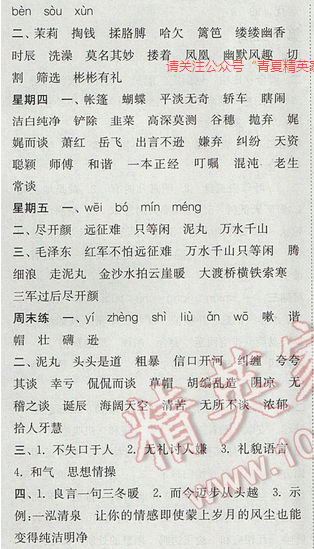 bèn　sòu　xùn
二、茉莉　掏钱　揉胳膊　哈欠　篱笆　缕缕幽香
时辰　洗澡　莫名其妙　搂着　凤凰　幽默风趣　切
请关注公众号"青夏精英家
割　筛选　彬彬有礼
星期四　一、帐篷　蝴蝶　平淡无奇　轿车　瞎闹
洁白纯净　铲除　韭菜　高深莫测　谷穗　抛弃　娓
娓而谈　萧红　岳飞　出言不逊　嫌弃　纠纷　天资
聪颖　师傅　和谐　一本正经　叮嘱　混沌　老生
常谈
星期五　一、wēi　bó　mín　méng
二、尽开颜　远征难　只等闲　泥丸　万水千山
三、毛泽东　红军不怕远征难　万水千山只等闲　腾
细浪　走泥丸　金沙水拍云崖暖　大渡桥横铁索寒
三军过后尽开颜
周末练　一、yí　zhèng　shì　liù　ǎn　wō　嗽　谐
帽　壮　礴　逊
二、泥丸　头头是道　粗暴　信口开河　纠缠　夸夸
其谈　幸亏　侃侃而谈　草帽　胡编乱造　阴凉　无
稽之谈　诞辰　海阔天空　清苦　无所不谈　浓郁
拾人牙慧
三、1. 不失口于人　2. 无礼讨人嫌　3. 礼貌语言
4. 和气　思想情操
四、1. 良言一句三冬暖　2. 而今迈步从头越　3. 示
例:一泓清泉　让你的情感即使蒙上岁月的风尘也能
变得纯洁明净
精英家
www.10